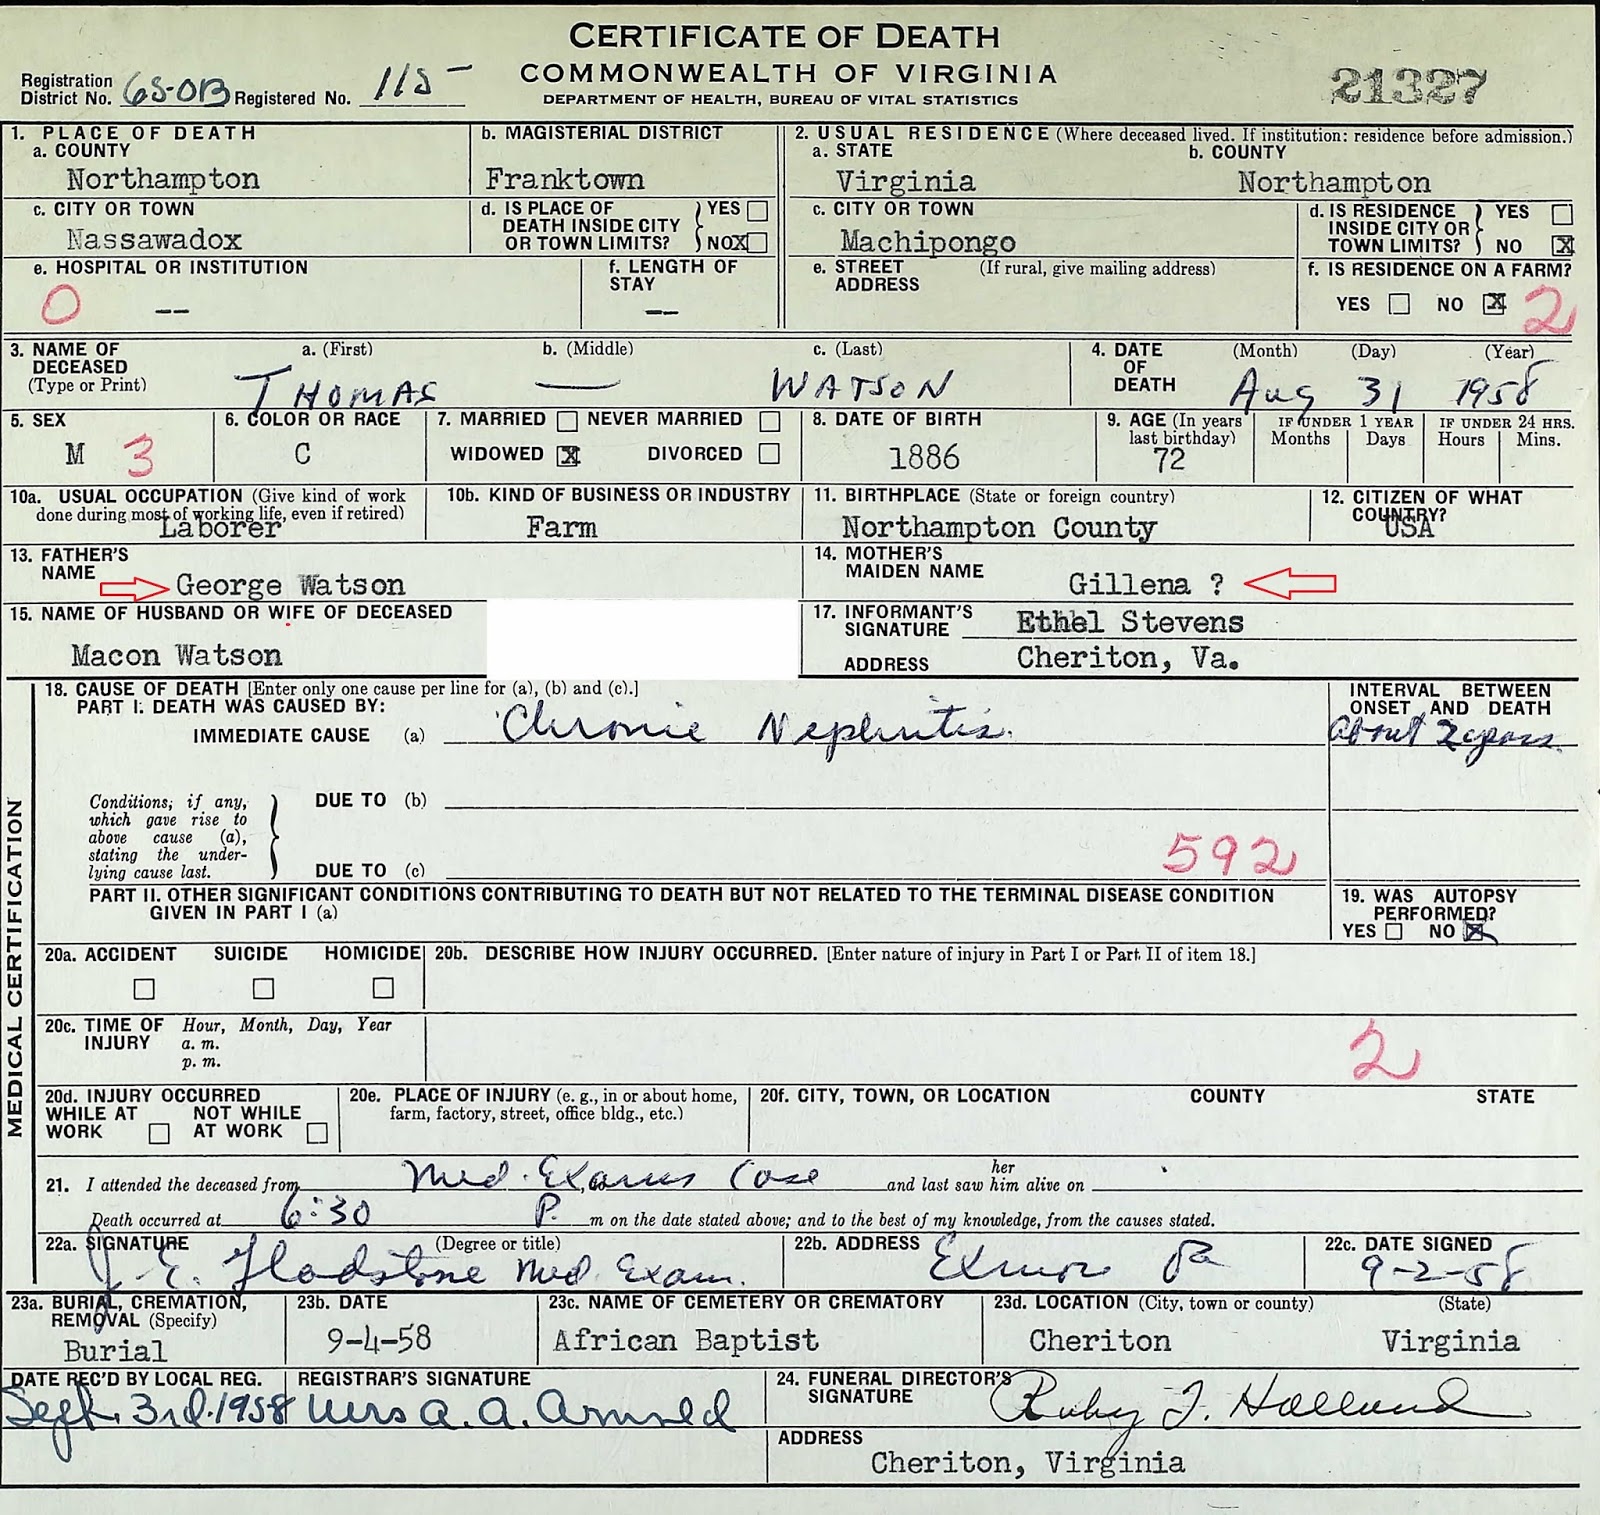 CERTIFICATE OF DEATH
COMMONWEALTH OF VIRGINIA
DEPARTMENT OF HEALTH, BUREAU OF VITAL STATISTICS
21327
Registration District No. 65-01B Registered No. 115
1. PLACE OF DEATH
a. COUNTY
Northampton
b. MAGISTERIAL DISTRICT
Franktown
2. USUAL RESIDENCE (Where deceased lived. If institution: residence before admission.)
a. STATE
Virginia
b. COUNTY
Northampton
c. CITY OR TOWN
Nassawadox
d. IS PLACE OF DEATH INSIDE CITY OR TOWN LIMITS? YES NO X
c. CITY OR TOWN
Machipongo
d. IS RESIDENCE INSIDE CITY OR TOWN LIMITS? YES NO X
e. HOSPITAL OR INSTITUTION
0 --
f. LENGTH OF STAY
--
e. STREET ADDRESS (If rural, give mailing address)
f. IS RESIDENCE ON A FARM?
YES NO X 2
3. NAME OF DECEASED (Type or Print)
a. (First) b. (Middle) c. (Last)
THOMAS — WATSON
4. DATE OF DEATH (Month) (Day) (Year)
Aug 31 1958
5. SEX
M 3
6. COLOR OR RACE
C
7. MARRIED NEVER MARRIED
WIDOWED X DIVORCED
8. DATE OF BIRTH
1886
9. AGE (In years last birthday)
72
IF UNDER 1 YEAR
Months Days
IF UNDER 24 HRS.
Hours Mins.
10a. USUAL OCCUPATION (Give kind of work done during most of working life, even if retired)
Laborer
10b. KIND OF BUSINESS OR INDUSTRY
Farm
11. BIRTHPLACE (State or foreign country)
Northampton County
12. CITIZEN OF WHAT COUNTRY?
USA
13. FATHER'S NAME
George Watson
14. MOTHER'S MAIDEN NAME
Gillena ?
15. NAME OF HUSBAND OR WIFE OF DECEASED
Macon Watson
17. INFORMANT'S SIGNATURE Ethel Stevens
ADDRESS Cheriton, Va.
MEDICAL CERTIFICATION
18. CAUSE OF DEATH [Enter only one cause per line for (a), (b) and (c).]
PART I. DEATH WAS CAUSED BY:
IMMEDIATE CAUSE (a) Chronic Nephritis.
INTERVAL BETWEEN ONSET AND DEATH
About 2 years
Conditions, if any, which gave rise to above cause (a), stating the underlying cause last.
DUE TO (b)
DUE TO (c)
592
PART II. OTHER SIGNIFICANT CONDITIONS CONTRIBUTING TO DEATH BUT NOT RELATED TO THE TERMINAL DISEASE CONDITION GIVEN IN PART I (a)
19. WAS AUTOPSY PERFORMED?
YES NO X
20a. ACCIDENT SUICIDE HOMICIDE
20b. DESCRIBE HOW INJURY OCCURRED. [Enter nature of injury in Part I or Part II of item 18.]
20c. TIME OF INJURY Hour, Month, Day, Year
a. m.
p. m.
2
20d. INJURY OCCURRED
WHILE AT WORK NOT WHILE AT WORK
20e. PLACE OF INJURY (e. g., in or about home, farm, factory, street, office bldg., etc.)
20f. CITY, TOWN, OR LOCATION COUNTY STATE
21. I attended the deceased from Med. Exams Case and last saw her him alive on
Death occurred at 6:30 P. m on the date stated above; and to the best of my knowledge, from the causes stated.
22a. SIGNATURE (Degree or title)
J. E. Gladstone Med. Exam.
22b. ADDRESS
Exmore Va
22c. DATE SIGNED
9-2-58
23a. BURIAL, CREMATION, REMOVAL (Specify)
Burial
23b. DATE
9-4-58
23c. NAME OF CEMETERY OR CREMATORY
African Baptist
23d. LOCATION (City, town or county) (State)
Cheriton Virginia
DATE REC'D BY LOCAL REG.
Sept. 3rd. 1958
REGISTRAR'S SIGNATURE
Mrs A. A. Arnold
24. FUNERAL DIRECTOR'S SIGNATURE
Ruby T. Holland
ADDRESS
Cheriton, Virginia